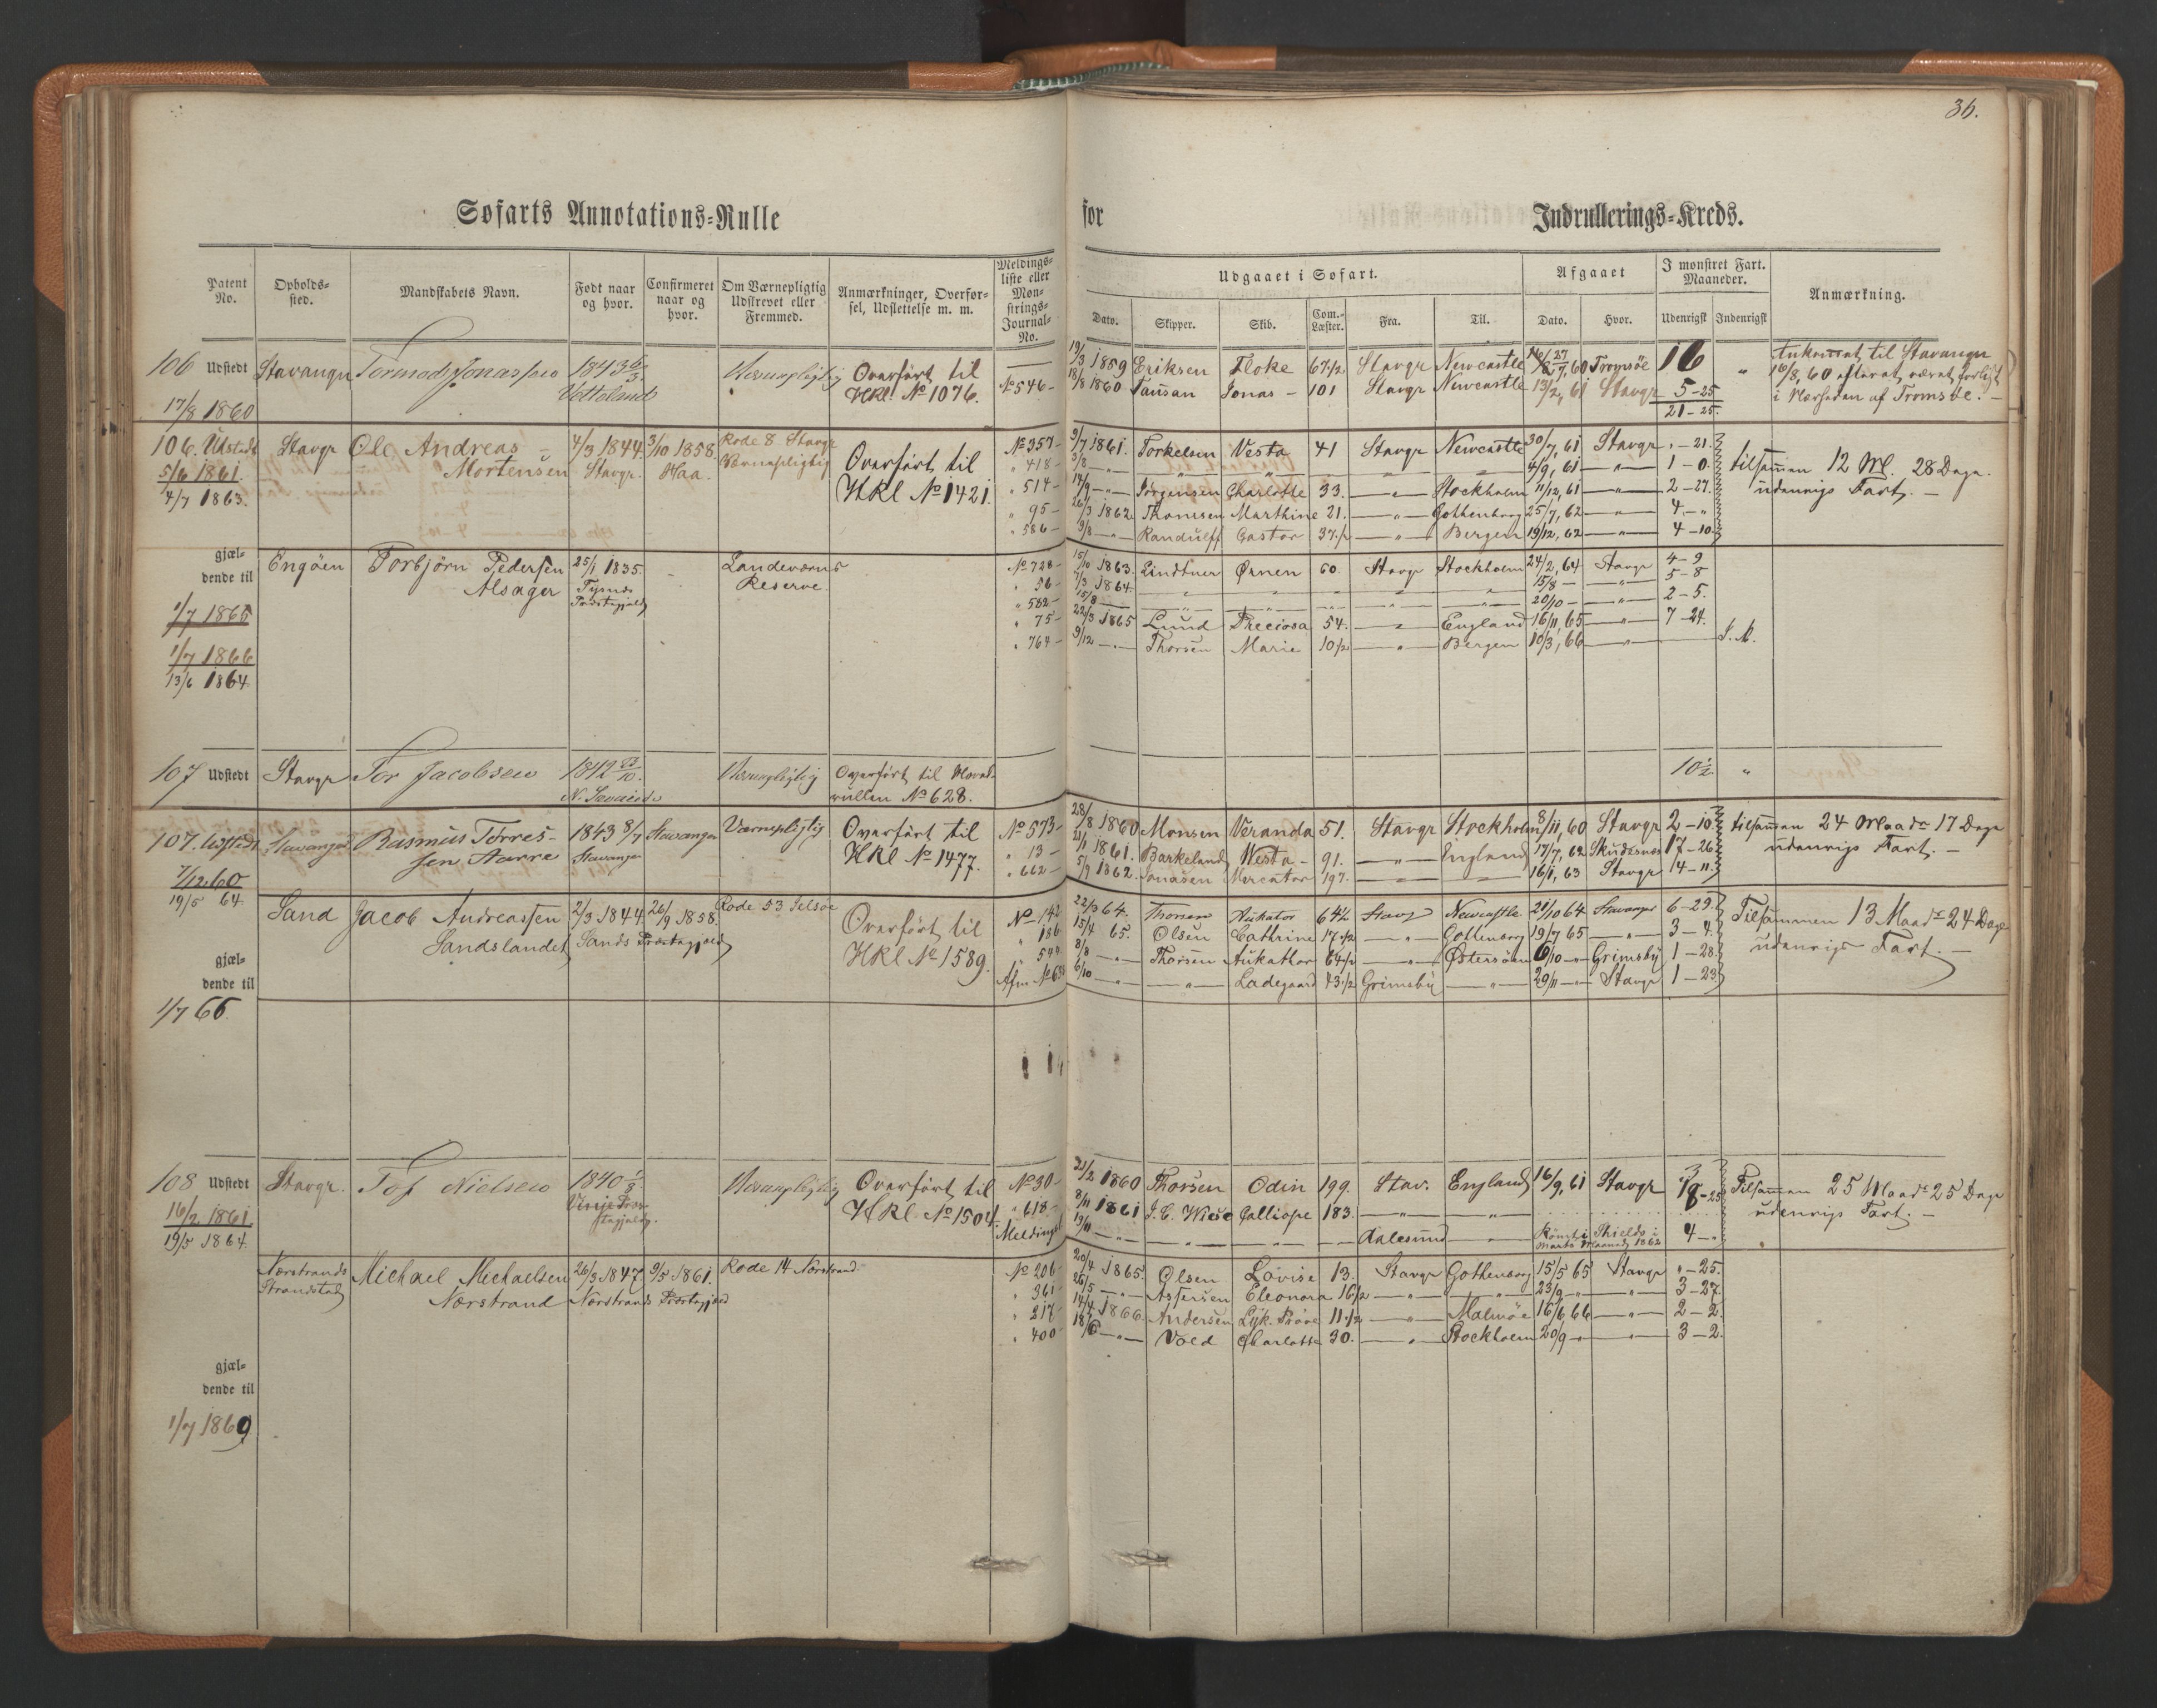 36.
Søfarts Annotations=Rulle for Indrullerings=Kreds.
Patent No.
Opholds=sted.
Mandskabets Navn.
Født naar og hvor.
Confirmeret naar og hvor.
Om Værnepligtig Udskrevet eller Fremmed.
Anmærkninger, Overfør=sel, Udslettelse m. m.
Meldings=liste eller Møn=strings=Journal=No.
Udgaaet i Søfart.
Dato. Skipper. Skib. Com.=Læster. Fra. Til.
Afgaaet
Dato. Hvor.
I mønstret Fart. Maaneder.
Udenrigsk Indenrigsk
Anmærkning.
106 Udstedt Stavanger Tormod Jonassen 1843 6/3 Værnepligtig Overført til
17/8 1860 Vetteland HKl. No 1076. No 546
19/3 1859 Eriksen Floke 67 1/2 Stavgr Newcastle 27/7, 60 Tromsöe 16 "
18/8 1860 Jonas 101 Stavgr Newcastle 13/2, 61 Stavgr 5-25
21-25.
Ankommet til Stavanger
16/8, 60 efterat været forligt
i Nærheden af Tromsöe.
106. Udstedt Stavgr Ole Andreas 4/3 1844. 3/10 1858. Rode 8 Stavgr
5/6 1861. Mortensen Stavgr. Haa. Værnepligtig Overført til
4/7 1863. HKl No 1421.
No 357 9/7 1861. Torkelsen Vesta 41 Stavgr Newcastle 30/7, 61 Stavgr " - 21.
" 418 - " - 4/9, 61 - " - 1 - 0.
" 514 14/9 - " - Jörgensen Charlotte 33. - " - Stockholm 11/12, 61 - " - 2 - 27.
" 95 26/3 1862 Thomsen Marthine 21. - " - Gothenborg 25/7, 62 - " - 4 - "
" 586 9/8 - " - Randulff Castor 37 1/2 - " - Bergen 19/12, 62 - " - 4 - 10
tilsammen 12 Md. 28 Dage
udenrigs Fart. -
gjæl=
dende til
1/7 1865
1/7 1866
13/6 1864
Engöen Torbjörn Pedersen 25/1 1835. Landeværns
Alsager Tysnæs Reserve.
Præstegjæld
No 728 15/10 1863. Lindtner Ørnen 60. Stavgr Stockholm 24/2, 64 Stavgr 4 - 9
" 56 7/3 1864. 15/8 - " - 5 - 8
" 582 15/8 20/10 - " - 2 - 5.
" 75 22/3 1865 Lund Preciosa 54. England 16/11, 65 - " - 7 - 24.
" 764 9/12 - " - Thorsen Marie 10 1/2 - " - Bergen 10/3, 66 - " -
107 Udstedt Stavgr Tor Jacobsen 1842 23/10. Værnepligtig Overført til Hoved-
rullen No 628. 10 1/2. "
107. Udstedt Stavanger Rasmus Torres- 1843 8/7 Stavanger Værnepligtig Overført til
7/12 60 sen Aarre Stavanger HKl No 1477.
19/5 64
No 573 28/8 1860 Monsen Veranda 51. Stavgr Stockholm 8/11, 60 Stavgr 2 - 10
" 13 21/1 1861. Barkeland Westa 91. - " - England 17/7, 62 Skudesnæs 17 - 26
" 662 5/9 1862. Jonasen Mercator 197. 16/1, 63 Stavgr 14 - 11.
tilsammen 24 Maadr 17 Dage
udenrigs Fart. -
Sand Jacob Andreassen 2/3 1844 26/9 1858 Rode 53 Jelsöe Overført til
Sandslandet Sands Præstegjæld HKl No 1589.
gjæl=
dende til
1/7 66.
No 142 22/3 64. Thorsen Aukator 64 1/2 Stavgr Newcastle 21/10 64 Stavanger 6 - 29.
" 186 15/4 65. Olsen Cathrine 17 1/2 - " - Gottenborg 19/7 65 - " - 3 - 4.
8/8 - " - Thorsen Aukathor 64 1/2 - " - Östersöen 6/10 - " - Grimsby 1 - 28
6/10 - " - - " - Ladegaard 73 1/2 Grimsby - " - 29/11 - Stavgr 1 - 23
Tilsammen 13 Maadr 24 Dage
udenrigs Fart. -
108 Udstedt Stavgr. Tof Nielsen 1840 1/8 Værnepligtig Overført til
16/2 1861. Præ- HKl No 1504.
19/5 1864. stegjæld.
No 30 21/2 1860 Thorsen Odin 199. Stav. England 16/9, 61 Stavgr 18 - 25
" 618 8/11 1861 J. C. Wiese Calliope 183. - " - - " -
Melding 19/11 - " - - " - Aalesund - " - Römt i Shields i
Marts Maaned 1862 4 - "
Tilsammen 25 Maadr 25 Dage
udenrigs Fart. -
Nærstrands Michael Michaelsen 26/3 1847 9/5 1861. Rode 14 Nærstrand
Strandstad Nærstrand Nærstrands Præstegjæld
No 206 20/4 1865. Olsen Lovise 13. Stavgr Gothenborg 15/5 65 Stavgr " - 25.
" 361 26/5 - " - Assersen Eleonora 16 1/2 - " - - " - 23/9 - " - - " - 3 - 27.
" 217 14/4 1866. Andersen Lyk. Pröve 11 1/2 - " - Malmöe 16/6 66 - " - 2 - 2.
" 400 18/6 - " - Vold Charlotte 30. - " - Stockholm 20/9 - " - - " - 3 - 2.
gjæl=
dende til
1/7 1869